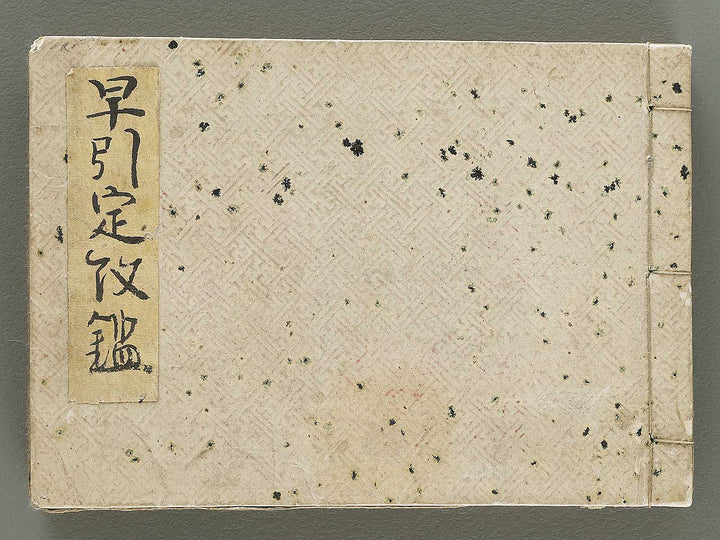 早引定紋鑑